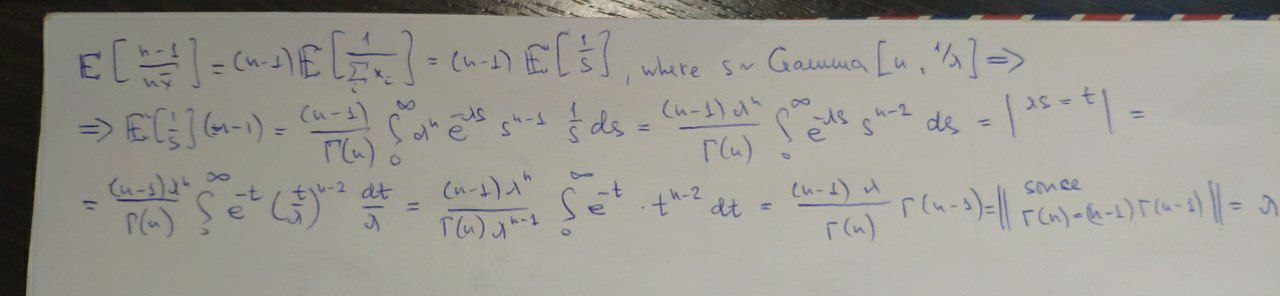 E[(n-1)/(n x̄)] = (n-1) E[1/(∑_i x_i)] = (n-1) E[1/S], where s ~ Gamma[n, 1/λ] ⇒
⇒ E[1/S](n-1) = (n-1)/Γ(n) ∫_0^∞ λ^n e^{-λs} s^{n-1} 1/s ds = (n-1)λ^n/Γ(n) ∫_0^∞ e^{-λs} s^{n-2} ds = |λs = t| =
= (n-1)λ^n/Γ(n) ∫_0^∞ e^{-t} (t/λ)^{n-2} dt/λ = (n-1)λ^n/(Γ(n) λ^{n-1}) ∫_0^∞ e^{-t} · t^{n-2} dt = (n-1)λ/Γ(n) Γ(n-1) = || since Γ(n) = (n-1)Γ(n-1) || = λ